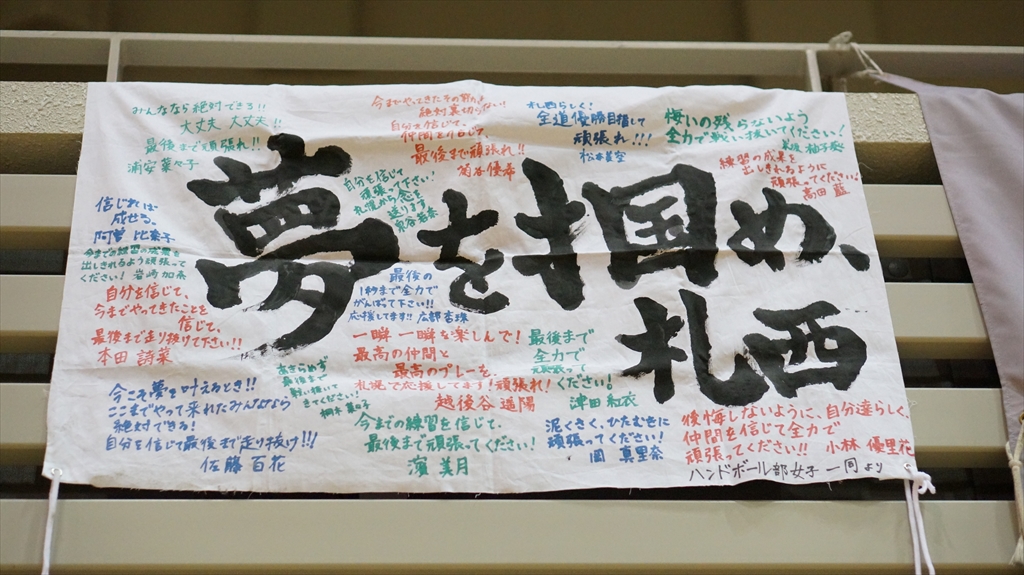 夢を掴め、
札西
みんななら絶対できる!!
大丈夫 大丈夫!!
最後まで頑張れ!!
浦安 菜々子
今までやってきたその努力は
絶対裏切らない!!
自分を信じて、
仲間を信じて、
最後まで頑張れ!!
菊谷 優希
札西らしく!
全道優勝目指して
頑張れ!!!
松本 星空
悔いの残らないよう
全力で戦い抜いてください!
練習の成果を
出しきれるように
頑張ってください!
高田 藍
自分を信じて
頑張って下さい!
札幌から念を
送ります。
信じれば
成せる。
阿曽 比奈子
今までの練習の成果を
出しきれるよう頑張って
ください! 岩崎 加奈
自分を信じて、
今までやってきたことを
信じて、
最後まで走り抜けて下さい!!
本田 詩菜
最後の
1秒まで全力で
がんばって下さい!!
応援してます!! 広部 杏珠
一瞬一瞬を楽しんで!
最高の仲間と
最高のプレーを。
札幌で応援してます!頑張れ!
越後谷 遥陽
最後まで
全力で
ください!
津田 結衣
あきらめず
最後まで
戦い抜いて
きてください!
今こそ夢を叶えるとき!!
ここまでやって来れたみんななら
絶対できる!
自分を信じて最後まで走り抜け!!!
佐藤 百花
今までの練習を信じて、
最後まで頑張ってください!
濱 美月
泥くさく、ひたむきに
頑張ってください!
園 真里奈
後悔しないように、自分達らしく、
仲間を信じて全力で
頑張ってください!! 小林 優里花
ハンドボール部女子一同より